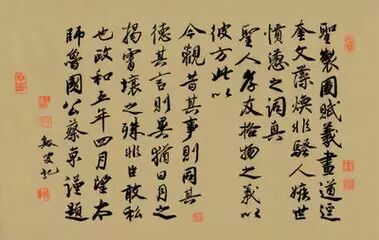 聖製圖賦羲畫道
奎文藻煥非騷人嫉世
憤懣之詞真
聖人孝友格物之義以
彼方此以
今觀昔其事則同其
德其言則異猶日月之
揭霄壤之殊非臣敢私
也政和五年四月望太
師魯國公蔡京謹題
敏叟記